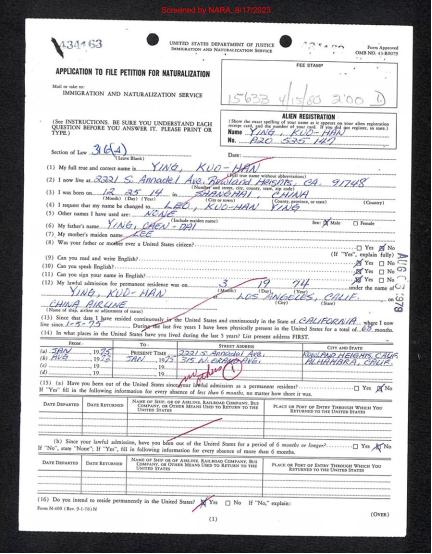 Screened by NARA, 8/17/2023
434163
UNITED STATES DEPARTMENT OF JUSTICE
IMMIGRATION AND NATURALIZATION SERVICE
Form Approved
OMB NO. 43-R0079
APPLICATION TO FILE PETITION FOR NATURALIZATION
FEE STAMP
Mail or take to:
IMMIGRATION AND NATURALIZATION SERVICE
15633 4/15/80 2'00 D
ALIEN REGISTRATION
(See INSTRUCTIONS. BE SURE YOU UNDERSTAND EACH QUESTION BEFORE YOU ANSWER IT. PLEASE PRINT OR TYPE.)
(Show the exact spelling of your name as it appears on your alien registration receipt card, and the number of your card. If you did not register, so state.)
Name YING, KUO-HAN
No. A20 525 147
Section of Law 316(A)
(Leave Blank)
Date:
(1) My full true and correct name is YING, KUO-HAN
(Full true name without abbreviations)
(2) I now live at 2221 S. Annadel Ave. Rowland Heights, CA. 91748
(Number and street, city, county, state, zip code)
(3) I was born on 12 25 14 in SHANGHAI, CHINA
(Month) (Day) (Year) (City or town) (County, province, or state) (Country)
(4) I request that my name be changed to LEO, KUO-HAN YING
(5) Other names I have used are: NONE
(Include maiden name) Sex: ☒ Male ☐ Female
(6) My father's name YING,
(7) My mother's maiden name
(8) Was your father or mother ever a United States citizen? ☐ Yes ☒ No
(If "Yes", explain fully)
(9) Can you read and write English? ☒ Yes ☐ No
(10) Can you speak English? ☒ Yes ☐ No
(11) Can you sign your name in English? ☒ Yes ☐ No
(12) My lawful admission for permanent residence was on 3 19 74 under the name of
(Month) (Day) (Year)
YING, KUO-HAN at LOS ANGELES, CALIF.
(City) (State)
CHINA AIRLINE
(Name of ship, airline or adjustment of status)
(13) Since that date I have resided continuously in the United States and continuously in the State of CALIFORNIA where I now live since 1-5-75. During the last five years I have been physically present in the United States for a total of 60 months.
(14) In what places in the United States have you lived during the last 5 years? List present address FIRST.
FROM TO STREET ADDRESS CITY AND STATE
(a) JAN 1975 PRESENT TIME 2221 S Annadel Ave. ROWLAND HEIGHTS, CALIF.
(b) AUG JAN 1975 ALHAMBRA, CALIF.
(c) 19 19
(d) 19 19
(15) (a) Have you been out of the United States since your lawful admission as a permanent resident? ☐ Yes ☒ No
If "Yes" fill in the following information for every absence of less than 6 months, no matter how short it was.
DATE DEPARTED DATE RETURNED NAME OF SHIP OR OF AIRLINE, RAILROAD COMPANY, BUS COMPANY, OR OTHER MEANS USED TO RETURN TO THE UNITED STATES PLACE OR PORT OF ENTRY THROUGH WHICH YOU RETURNED TO THE UNITED STATES
(b) Since your lawful admission, have you been out of the United States for a period of 6 months or longer? ☐ Yes ☒ No
If "No", state "None"; If "Yes", fill in following information for every absence of more than 6 months.
DATE DEPARTED DATE RETURNED NAME OF SHIP OR OF AIRLINE, RAILROAD COMPANY, BUS COMPANY, OR OTHER MEANS USED TO RETURN TO THE UNITED STATES PLACE OR PORT OF ENTRY THROUGH WHICH YOU RETURNED TO THE UNITED STATES
(16) Do you intend to reside permanently in the United States? ☒ Yes ☐ No If "No," explain:
Form N-400 (Rev. 9-1-78)N
(1)
(OVER)